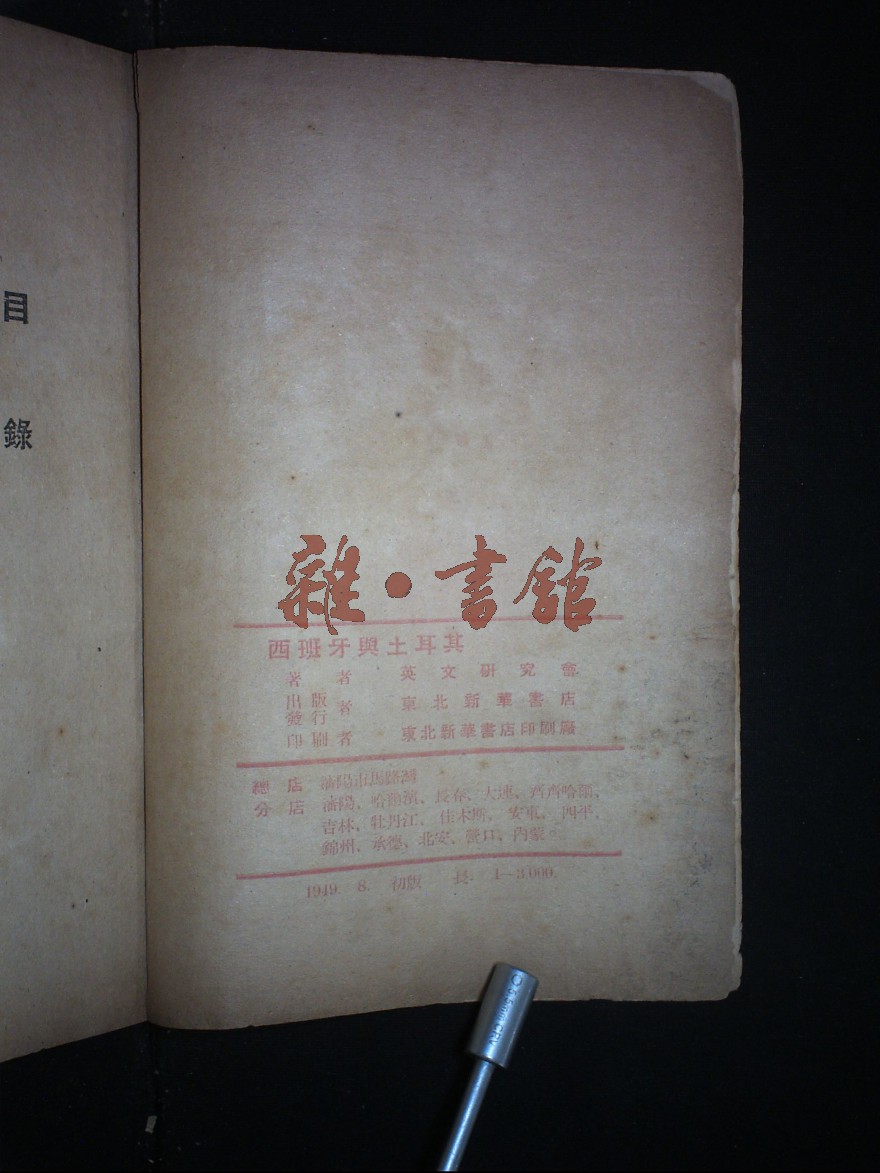 目錄
雜·書館
西班牙與土耳其
著者 英文研究會
出版
發行者 東北新華書店
印刷者 東北新華書店印刷廠
總店 瀋陽市馬路灣
分店 瀋陽、哈爾濱、長春、大連、齊齊哈爾、
吉林、牡丹江、佳木斯、安東、四平、
錦州、承德、北安、營口、內蒙。
1949. 8. 初版 長. 1—3,000.